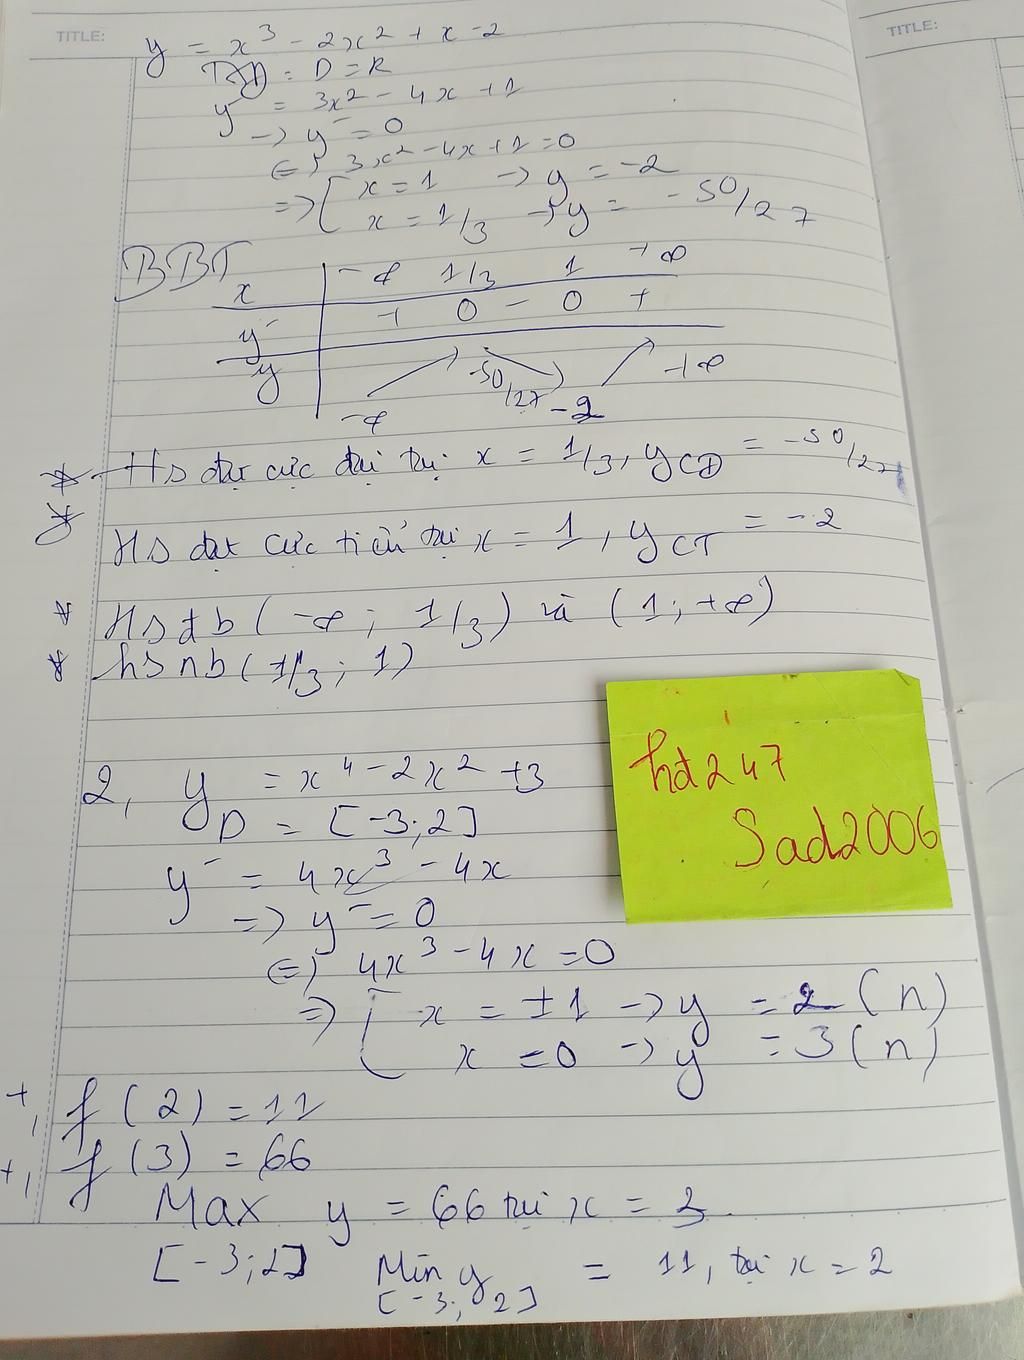 TITLE:
TITLE:
y = x³ - 2x² + x - 2
TXĐ: D = R
y' = 3x² - 4x + 1
-> y' = 0
<=> 3x² - 4x + 1 = 0
=> [ x = 1 -> y = -2
x = 1/3 -> y = -50/27
BBT
x -∞ 1/3 1 +∞
y' + 0 - 0 +
y -∞ -50/27 -2 +∞
* Hs đạt cực đại tại x = 1/3, yCĐ = -50/27
* Hs đạt cực tiểu tại x = 1, yCT = -2
* Hs đb (-∞; 1/3) và (1; +∞)
* hs nb (1/3; 1)
2, y = x⁴ - 2x² + 3
D = [-3; 2]
y' = 4x³ - 4x
=> y' = 0
<=> 4x³ - 4x = 0
=> [ x = ±1 -> y = 2 (n)
x = 0 -> y = 3 (n)
+, f(2) = 11
+, f(3) = 66
Max y = 66 tại x = 3.
[-3; 2]
Min y = 11, tại x = 2
[-3; 2]
hd247
Sad2006